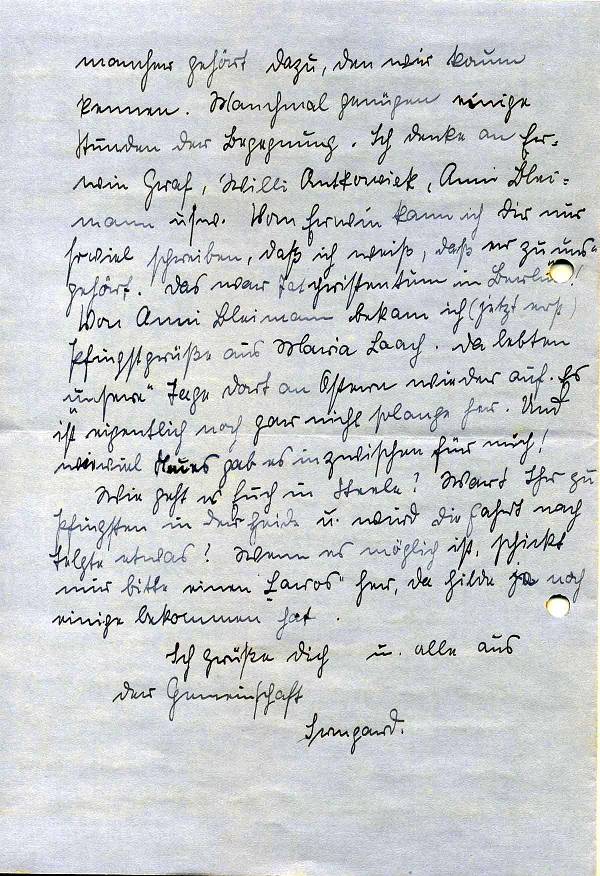 mancher gehört dazu, den wir kaum
kennen. Manchmal genügen einige
Stunden der Begegnung. Ich denke an Er-
win Graf, Willi Antkowiak, Anni Blei-
mann usw. Vom Erwin kann ich Dir nur
soviel schreiben, daß ich weiß, daß er zu „uns"
gehört. Das war Tatchristentum in Berlin!
Von Anni Bleimann bekam ich (jetzt erst)
Pfingstgrüße aus Maria Laach. Da lebten
„unsere" Tage dort an Ostern wieder auf. Es
ist eigentlich noch gar nicht solange her. Und
wieviel Neues gab es inzwischen für mich!
Wie geht es Euch in Steele? Wart Ihr zu
Pfingsten in der Heide u. wird die Fahrt nach
Telgte etwas? Wenn es möglich ist, schickt
mir bitte einen „Lawos" her, da Hilde ja noch
einige bekommen hat.
Ich grüße Dich u. alle aus
der Gemeinschaft
Irmgard.